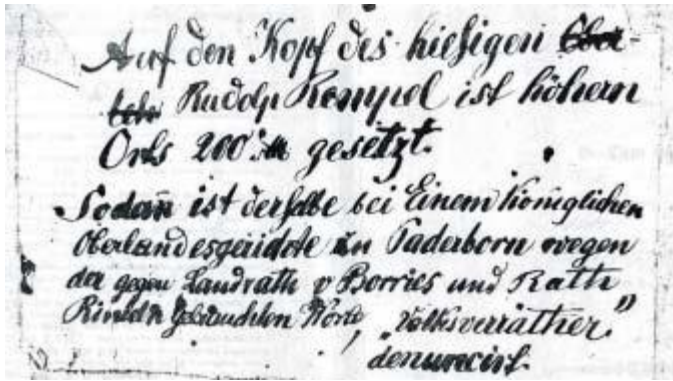 Auf den Kopf des hiesigen Ober-
Rudolf Rempel ist höhern
Orts 200 gesetzt.
Sodan̄ ist derselbe bei Einem Königlichen
Oberlandesgerichte zu Paderborn wegen
der gegen Landrath v Borries und Rath
gebrauchten Worte, „Volksverräther”
denuncirt.